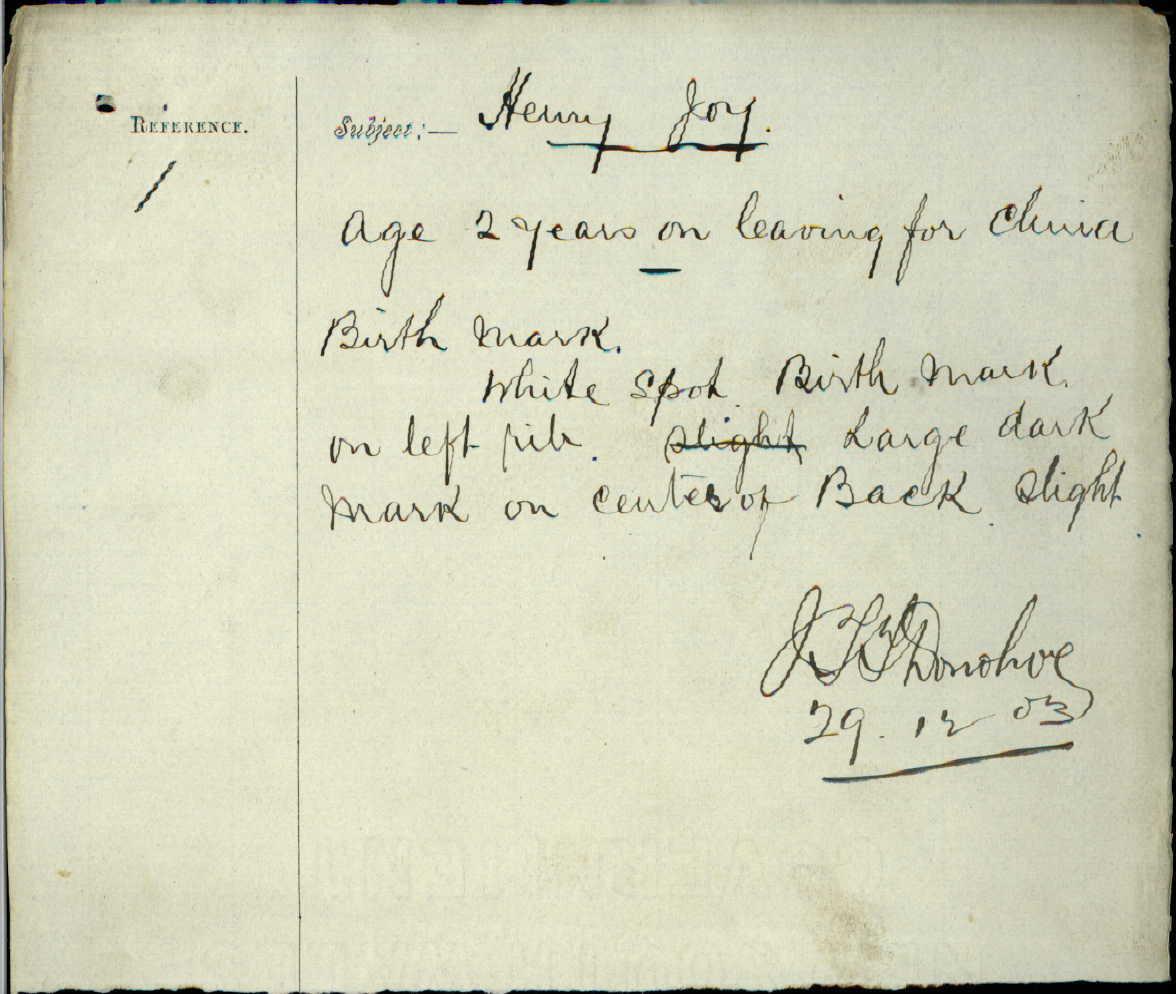 REFERENCE.
/
Subject:— Henry Joy.
Age 2 years on leaving for China
Birth Mark.
White Spot. Birth Mark.
on left rib. slight Large dark
Mark on center of Back. Slight
Donohoe
29. 12 03